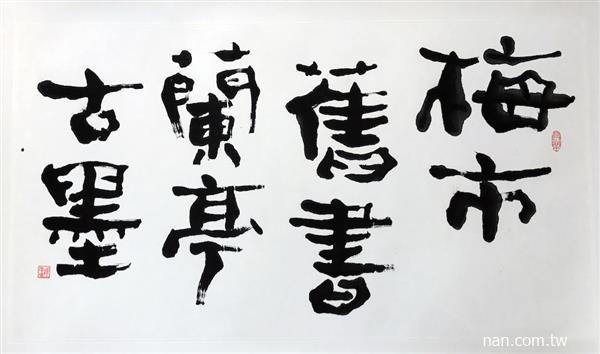 梅市
舊書
蘭亭
古墨
nan.com.tw